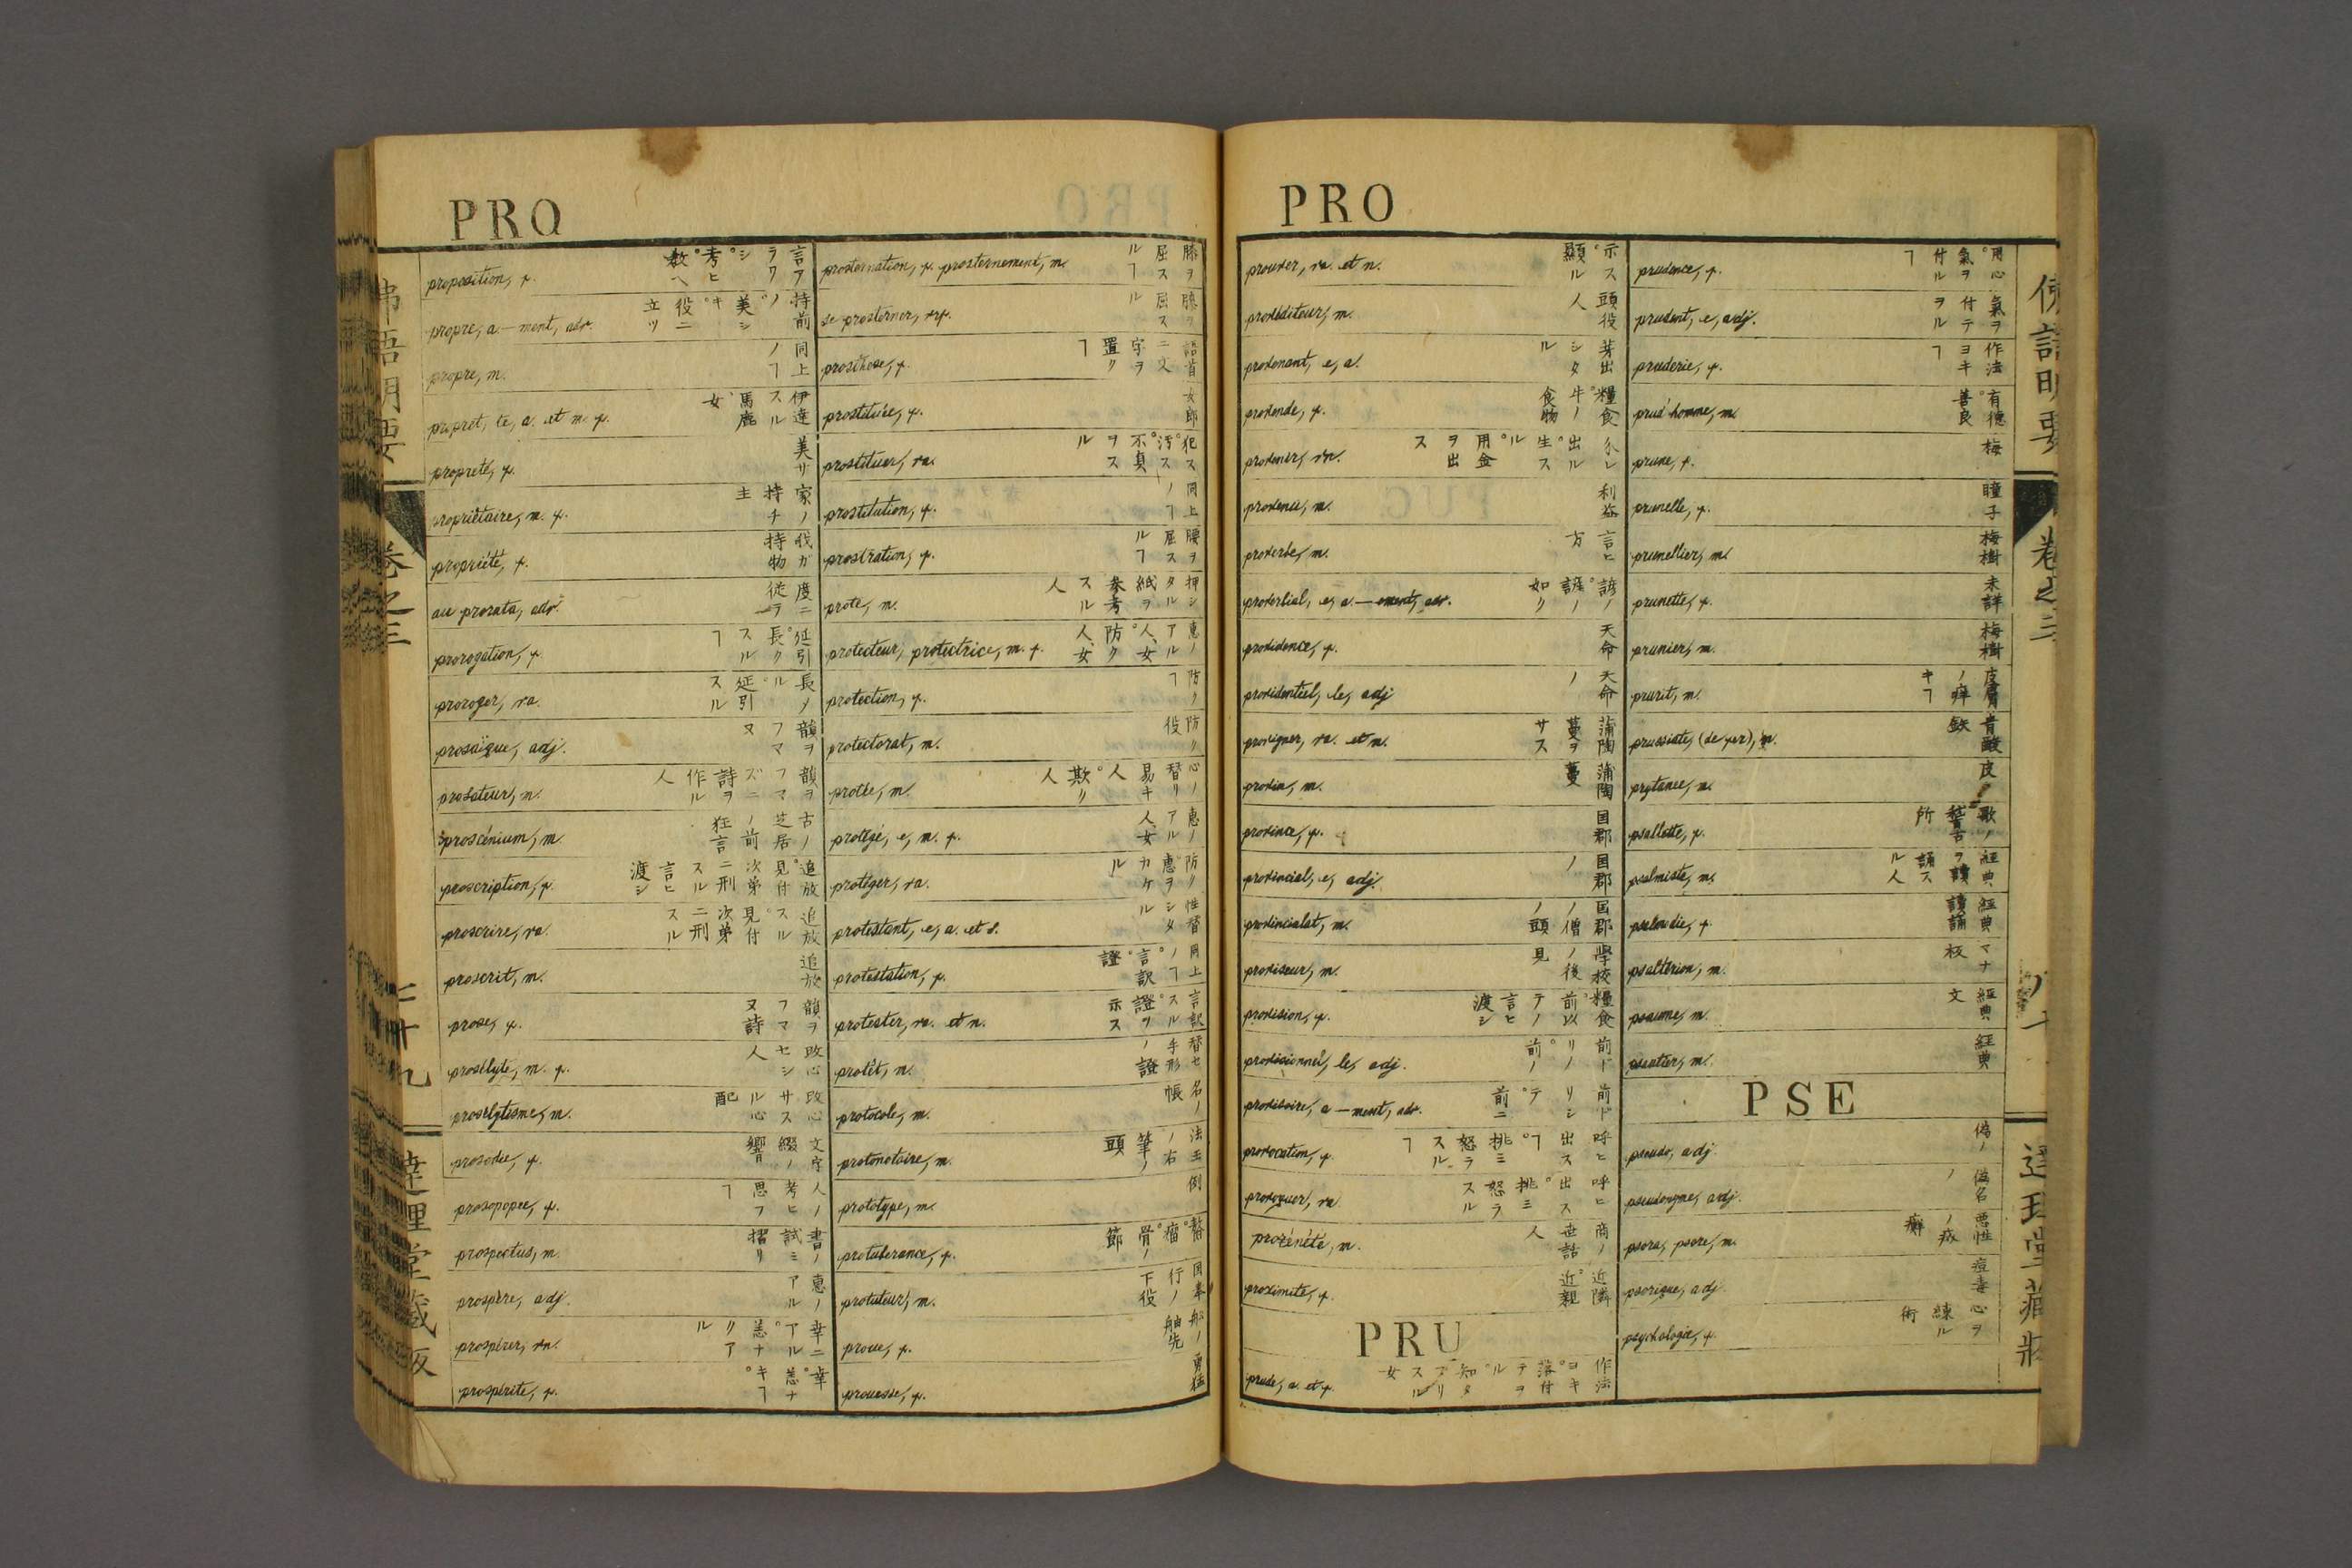 PRO
proposition, f. 言アラワシ。考ヒ。教ヘ
propre, a. — ment, adv. 持前ノ。美シキ。役ニ立ツ
propre, m. 同上ノヿ
propret, te, a. et m. f. 伊達スル馬鹿。女
propreté, f. 美サ
propriétaire, m. f. 家ノ持チ主
propriété, f. 我ガ持物
au prorata, adv. 度ニ従ラ
prorogation, f. 延引。長クスルヿ
proroger, va. 長ノル。延引スル
prosaïque, adj. 韻ヲフマヌ
prosateur, m. 韻ヲフマズニ詩ヲ作ル人
proscénium, m. 古ノ芝居ノ前狂言
proscription, f. 追放。見付次第ニ刑スル言ヒ渡シ
proscrire, va. 追放スル。見付次第ニ刑スル
proscrit, m. 追放
prose, f. 韻ヲフマヌ詩
prosélyte, m. f. 改心セシ人
prosélytisme, m. 改心サスル心配
prosodie, f. 文字綴ノ響
prosopopée, f. 人ノ考ヒ思フヿ
prospectus, m. 書ノ試ミ摺リ
prospère, adj. 恵ノアル
prospérer, vn. 幸ニアル。恙ナリアル
prospérité, f. 幸。恙ナキヿ
prosternation, f. prosternement, m. 膝ヲ屈スルヿ
se prosterner, vrp. 膝ヲ屈スル
prosthèse, f. 語首ニ文字ヲ置クヿ
prostituée, f. 女郎
prostituer, va. 犯ス。汚ス。不貞ヲスル
prostitution, f. 同上ノヿ
prostration, f. 腰ヲ屈スルヿ
prote, m. 押シタル紙ヲ参考スル人
protecteur, protectrice, m. f. 恵ノアル人、女。防ク人、女
protection, f. 防クヿ
protectorat, m. 防ク役
protée, m. 心ノ替リ易キ人。欺ク人
protégé, e, m. f. 恵ノアル人、女
protéger, va. 防ク、恵ヲカケル
protestant, e, a. et s. 性替シタル
protestation, f. 同上ノヿ。言訳。證
protester, va. et n. 言訳スル。證ヲ示ス
protêt, m. 替セ手形ノ證
protocole, m. 名ノ帳
protonotaire, m. 法王ノ右筆ノ頭
prototype, m. 例
protubérance, f. 瘤。骨ノ節
protuteur, m. 行ノ下役
proue, f. 船ノ舳先
prouesse, f. 勇猛
佛語明要
巻之三
二十九
達理堂蔵版
PRO
prouver, va. et n. 示ス。顕ル
provéditeur, m. 頭役人
provenant, e, a. 芽出シタル
provende, f. 糧食。牛ノ食物
provenir, vn. 出ル。生スル。用金ヲ出ス
provenu, m. 利益
proverbe, m. 言ヒ方
proverbial, e, a. — ement, adv. 諺ノ。諺ノ如ク
providence, f. 天命
providentiel, le, adj 天命ノ
provigner, va. et n. 蒲陶蔓ヲサス
provin, m. 蒲陶蔓
province, f. 国郡
provincial, e, adj. 国郡ノ
provincialat, m. 国郡ノ僧ノ頭
proviseur, m. 学校ノ後見
provision, f. 糧食。前以テノ言ヒ渡シ
provisionnel, le, adj. 前ドリノ。前ノ
provisoire, a — ment, adv. 前ドリシテ。前ニ
provocation, f. 呼ヒ出スヿ。挑ミ怒ラスルヿ
provoquer, va 呼ヒ出ス。挑ミ怒ラスル
proxénète, m. 商ノ世話人
proximité, f. 近隣。近親
PRU
prude, a. et f. 作法ヨキ。落付ヲテル。知タブリスル女
prudence, f. 用心。氣ヲ付ルヿ
prudent, e, adj. 氣ヲ付テヲル
pruderie, f. 作法ヨキヿ
prud'homme, m. 有徳。善良
prune, f. 梅
prunelle, f. 瞳子
prunellier, m. 梅樹
prunette, f. 未詳
prunier, m. 梅樹
prurit, m. 皮膚ノ痒キヿ
prussiate, (de fer), m. 青酸鉄
prytanée, m.
psallette, f. 歌ノ稽古所
psalmiste, m. 経典ヲ讀誦スル人
psalmodie, f. 経典讀誦
psaltérion, m.
psaume, m. 経典文
psautier, m. 経典
PSE
pseudo, adj. 偽ノ
pseudonyme, adj. 偽名ノ
psora, psore, m. 悪性ノ疥癬
psorique, adj
psychologie, f. 心ヲ練ル術
佛語明要
巻之三
達理堂蔵版